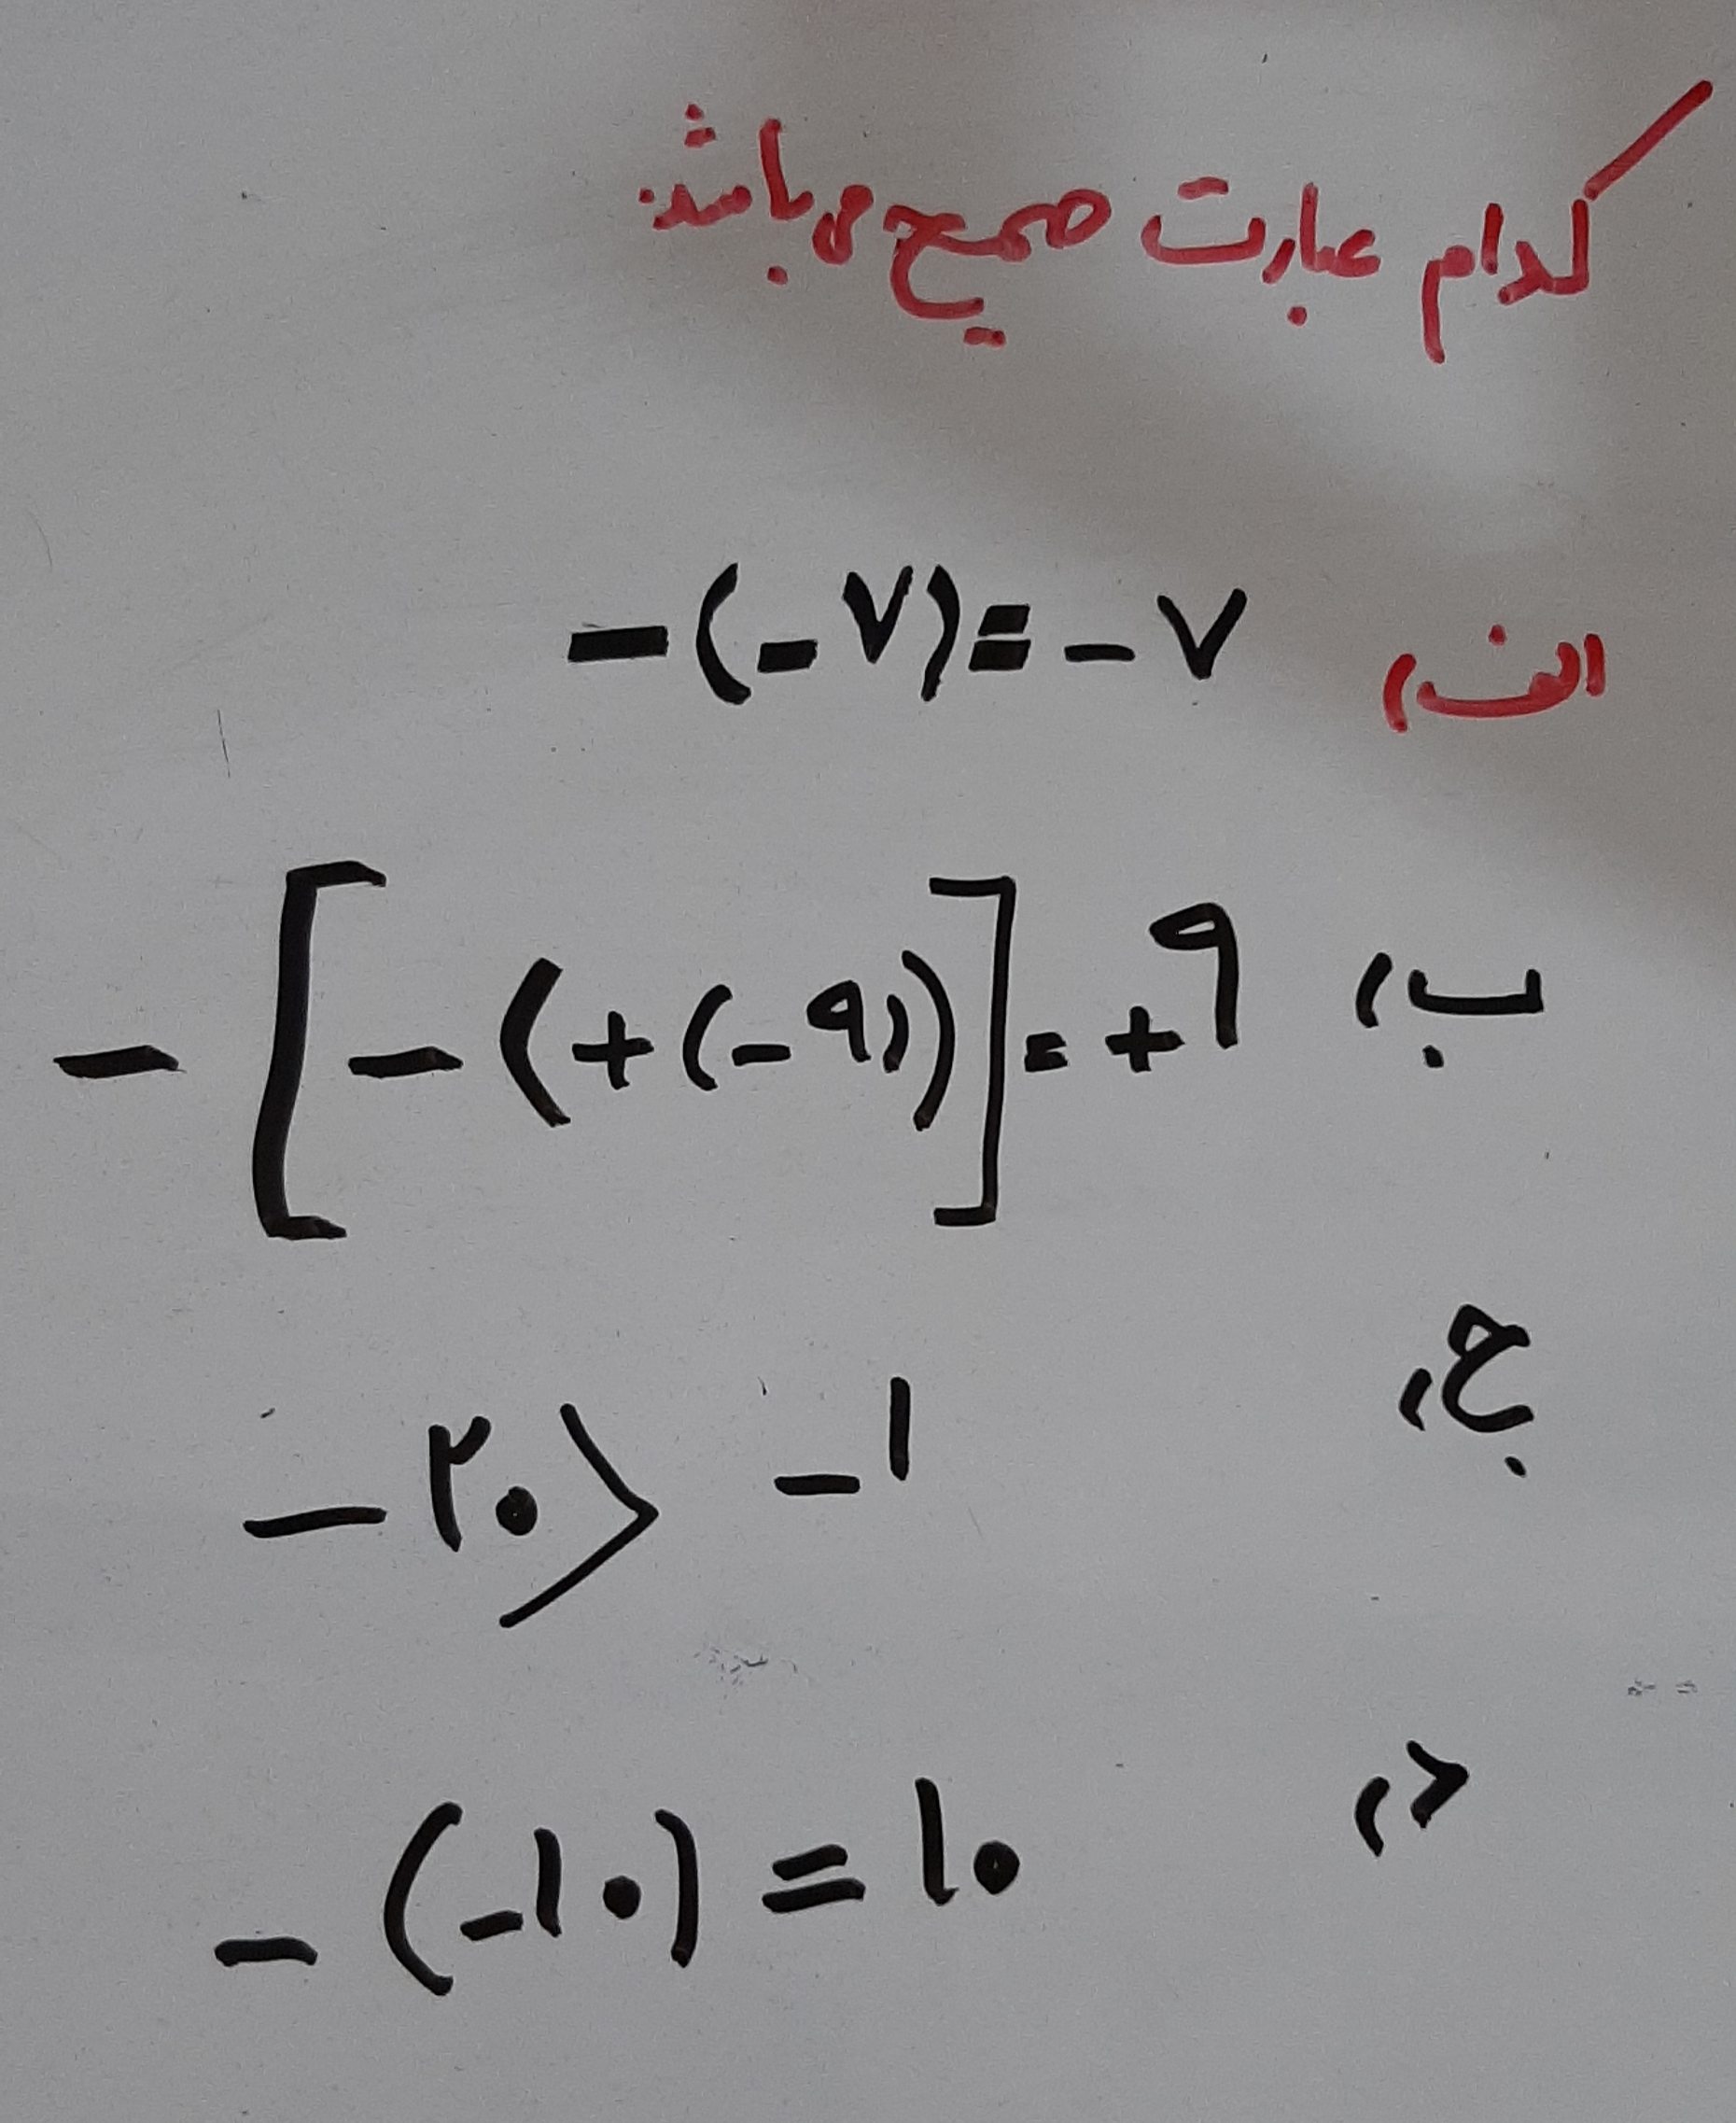 کدام عبارت صحیح می باشد:
الف) -(-۷) = -۷
ب) -[-(+(-۹))] = +۹
ج) -۲۰ > -۱
د) -(-۱۰) = ۱۰